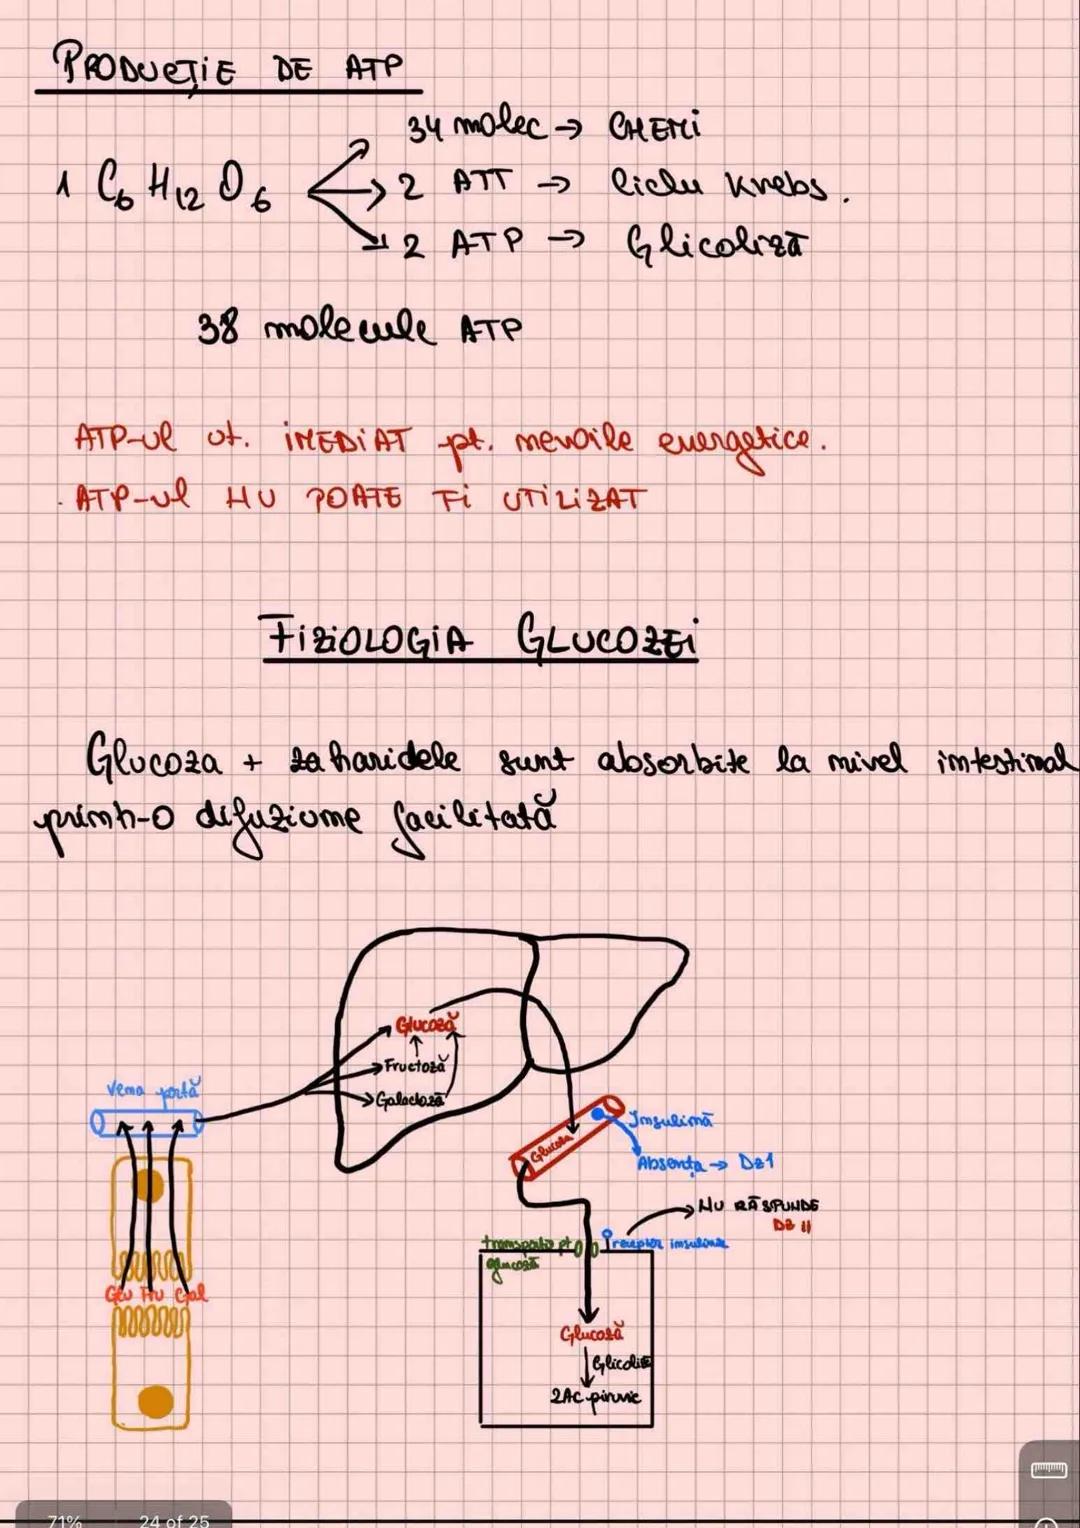 PRODUCȚIE DE ATP
34 molec → CHEMI
1 C6 H12 O6
2 ATT → Ciclu Krebs.
2 ATP → Glicoliză
38 molecule ATP
ATP-ul ut. IMEDIAT pt. nevoile energetice.
. ATP-ul NU POATE FI UTILIZAT
FIZIOLOGIA GLUCOZEI
Glucoza + zaharidele sunt absorbite la nivel intestinal
printr-o difuziune facilitată
Glucoză
Fructoză
Galactoză
Vena portă
Insulină
Glucoza
Absența → DZ1
NU RĂSPUNDE
DZ II
transportor pt
receptor insulină
glucoză
Glu Fru Gal
Glucoză
Glicoliză
2Ac piruvic
71%
24 of 25